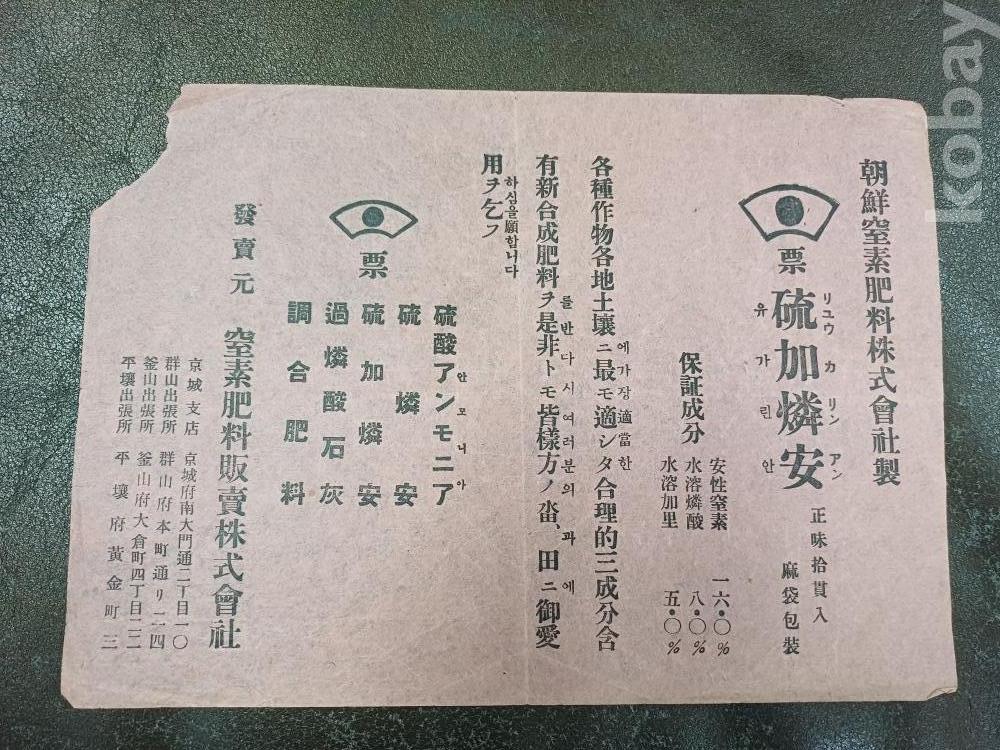 朝鮮窒素肥料株式會社製
票 硫加燐安
リユウ カ リン アン
유 가 린 안
正味拾貫入
麻袋包裝
保証成分
安性窒素 一六・〇%
水溶燐酸 八・〇%
水溶加里 五・〇%
各種作物各地土壤ニ最モ適シタ合理的三成分含
에가장適當한
有新合成肥料ヲ是非トモ皆樣方ノ畓、田ニ御愛
를반다시여러분의 과 에
用ヲ乞フ
하심을願합니다
票
硫酸アンモニア
안모니아
硫燐安
硫加燐安
過燐酸石灰
調合肥料
發賣元 窒素肥料販賣株式會社
京城支店 京城府南大門通二丁目一〇
群山出張所 群山府本町通リ二一四
釜山出張所 釜山府大倉町四丁目二二
平壤出張所 平壤府黃金町三
kobay